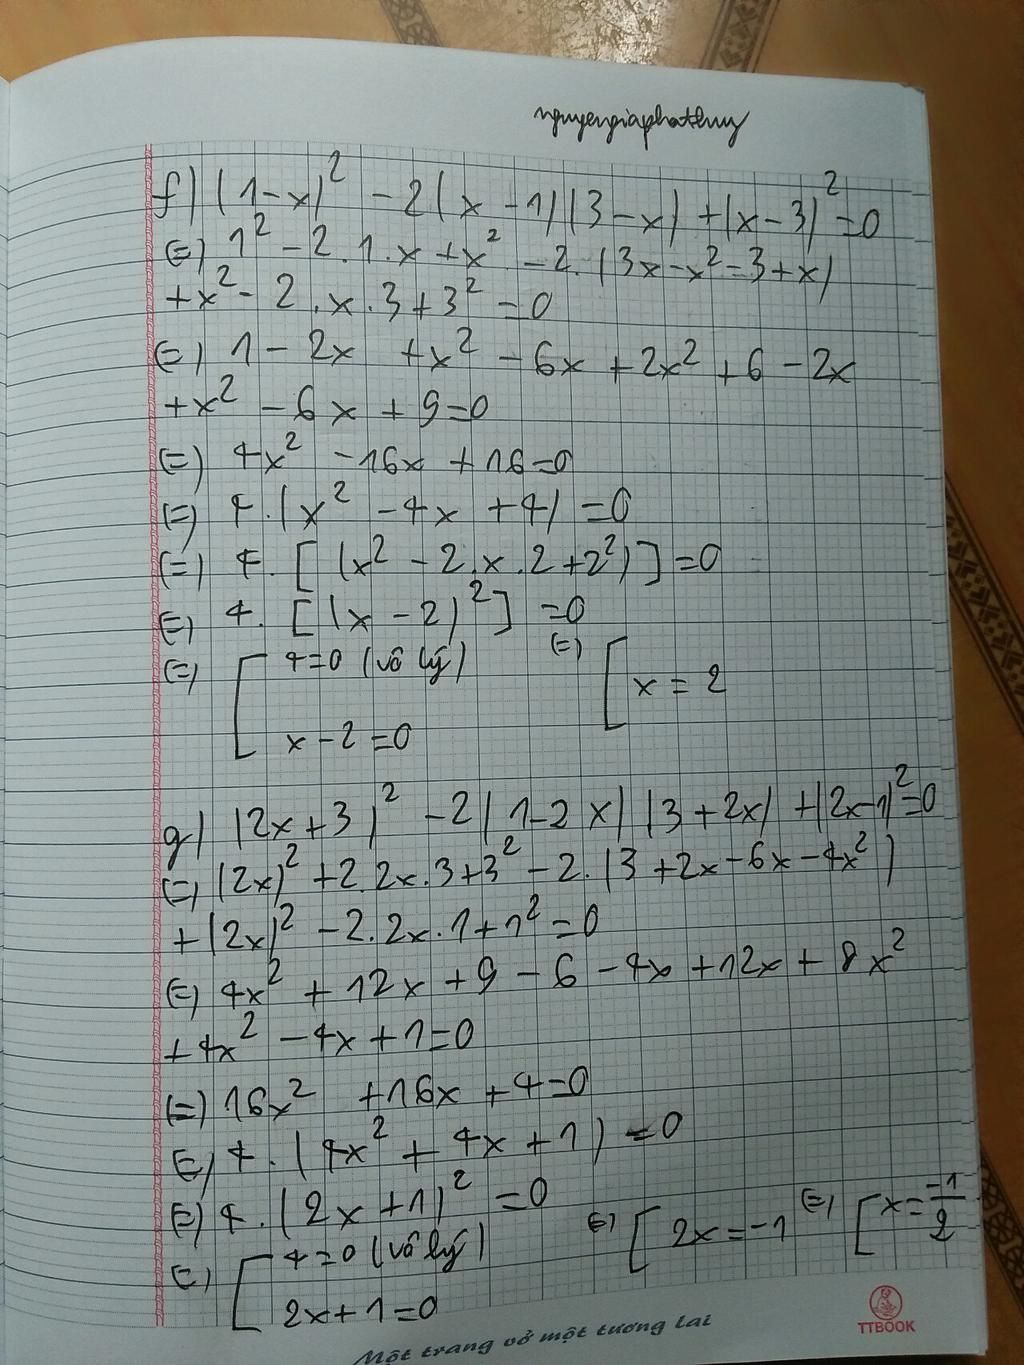 nguyengiaphathuy
f) (1-x)² - 2(x-1)(3-x) + (x-3)² = 0
(=) 1² - 2.1.x + x² - 2.(3x - x² - 3 + x)
+ x² - 2.x.3 + 3² = 0
(=) 1 - 2x + x² - 6x + 2x² + 6 - 2x
+ x² - 6x + 9 = 0
(=) 4x² - 16x + 16 = 0
(=) 4.(x² - 4x + 4) = 0
(=) 4.[(x² - 2.x.2 + 2²)] = 0
(=) 4.[(x-2)²] = 0
(=) [ 4 = 0 (vô lý) (=) [ x = 2
x - 2 = 0
g) (2x+3)² - 2(1-2x)(3+2x) + (2x-1)² = 0
(=) (2x)² + 2.2x.3 + 3² - 2.(3 + 2x - 6x - 4x²)
+ (2x)² - 2.2x.1 + 1² = 0
(=) 4x² + 12x + 9 - 6 - 4x + 12x + 8x²
+ 4x² - 4x + 1 = 0
(=) 16x² + 16x + 4 = 0
(=) 4.(4x² + 4x + 1) = 0
(=) 4.(2x+1)² = 0
(=) [ 4 = 0 (vô lý) (=) [ 2x = -1 (=) [ x = -1/2
2x + 1 = 0
Một trang vở một tương lai
TTBOOK